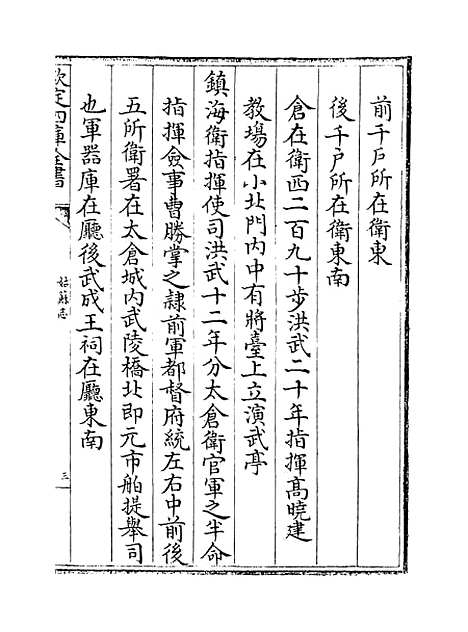 前千戸所在衛東
後千戸所在衛東南
倉在衛西二百九十步洪武二十年指揮高曉建
教場在小北門内中有將臺上立演武亭
鎮海衛指揮使司洪武十二年分太倉衛官軍之半命
指揮僉事曹勝掌之隷前軍都督府統左右中前後
五所衛署在太倉城内武陵橋北即元市舶提舉司
也軍器庫在廳後武成王祠在廳東南
欽定四庫全書
姑蘇志
三